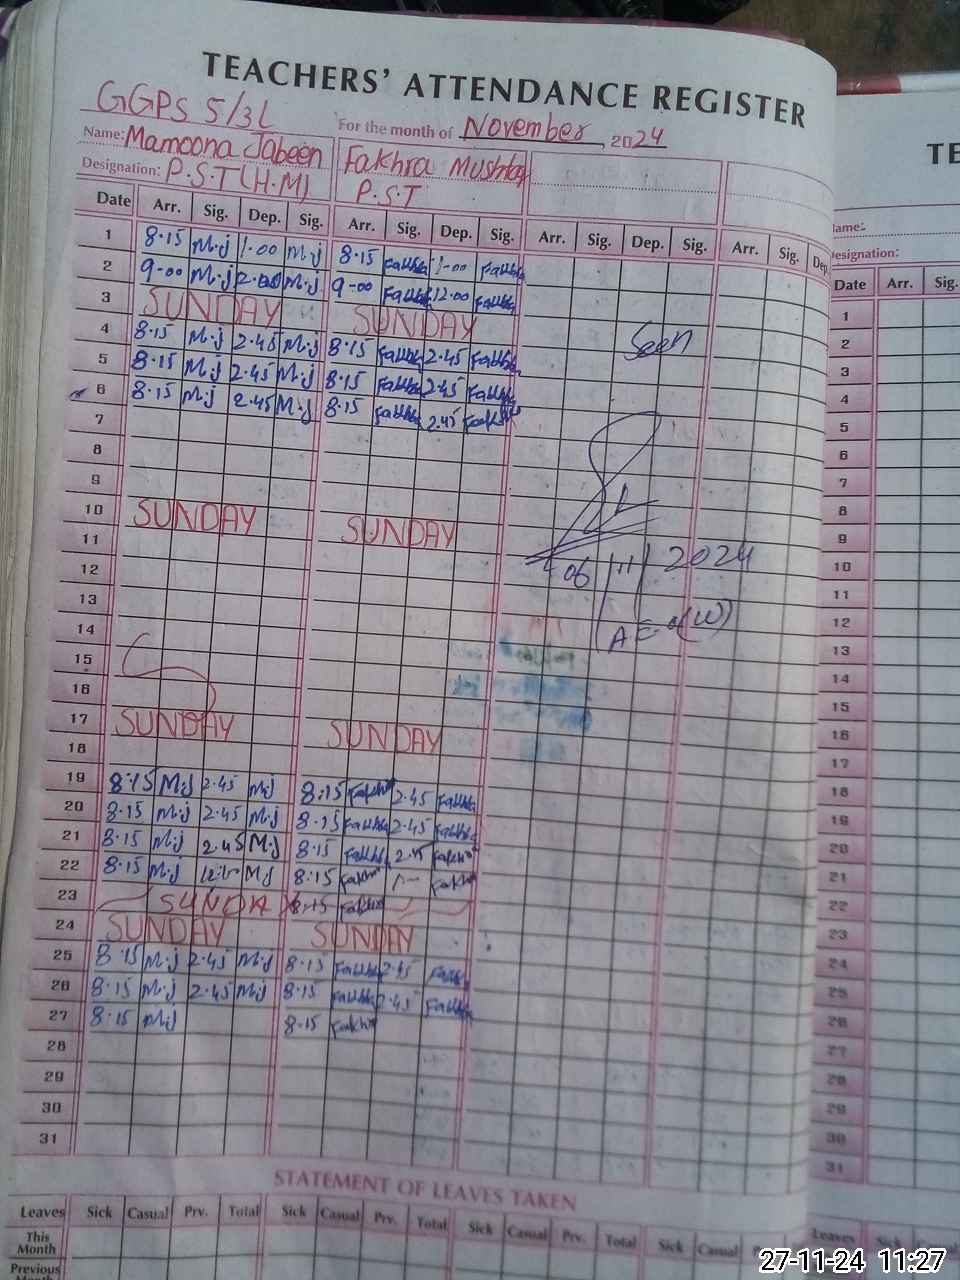 TEACHERS' ATTENDANCE REGISTER
GGPS 5/3L
For the month of November 2024
Name: Mamoona Jabeen Fakhra Mushtaq
Designation: P.S.T (H.M) P.S.T
Date Arr. Sig. Dep. Sig. Arr. Sig. Dep. Sig. Arr. Sig. Dep. Sig. Arr. Sig. Dep.
1 8.15 M.j 1.00 M.j 8.15 1.00
2 9-00 M.j M.j 9-00 12.00
3 SUNDAY SUNDAY
4 8.15 M.j 2.45 M.j 8.15 2.45
Seen
5 8.15 M.j 2.45 M.j 8.15 2.45
6 8.15 M.j 2.45 M.j 8.15 2.45
7
8
9
10 SUNDAY SUNDAY
11
06/11/2024
12
13
A.E.O(W)
14
15
16
17 SUNDAY SUNDAY
18
19 8:15 M.j 2.45 M.j 8:15 2.45
20 8.15 M.j 2.45 M.j 8.15 2.45
21 8.15 M.j 2.45 M.j 8.15 2.45
22 8.15 M.j M.j 8:15
23 SUNDA 8:15
24 SUNDAY SUNDAY
25 8.15 M.j 2.45 M.j 8.15 2.45
26 8.15 M.j 2.45 M.j 8.15 2.45
27 8.15 M.j 8.15
28
29
30
31
STATEMENT OF LEAVES TAKEN
Leaves Sick Casual Prv. Total Sick Casual Prv. Total Sick Casual Prv. Total Sick Casual
This Month
Previous
TE
Name:
Designation:
Date Arr. Sig.
1
2
3
4
5
6
7
8
9
10
11
12
13
14
15
16
17
18
19
20
21
22
23
24
25
26
27
28
29
30
31
Leaves Sick Casual
27-11-24 11:27